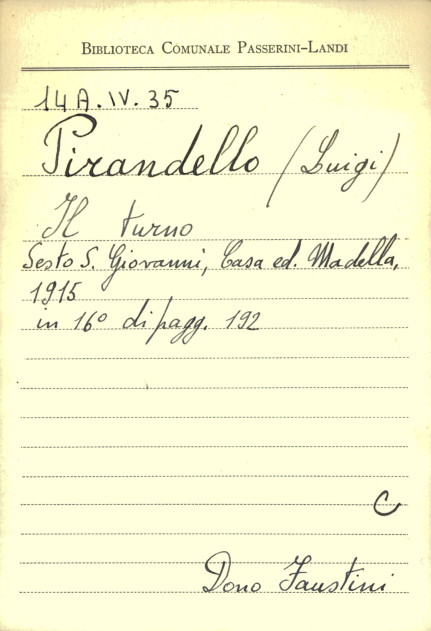 BIBLIOTECA COMUNALE PASSERINI-LANDI
14A.IV.35
Pirandello (Luigi)
Il turno
Sesto S. Giovanni, Casa ed. Madella,
1915
in 16° di pagg. 192
C
Dono Faustini